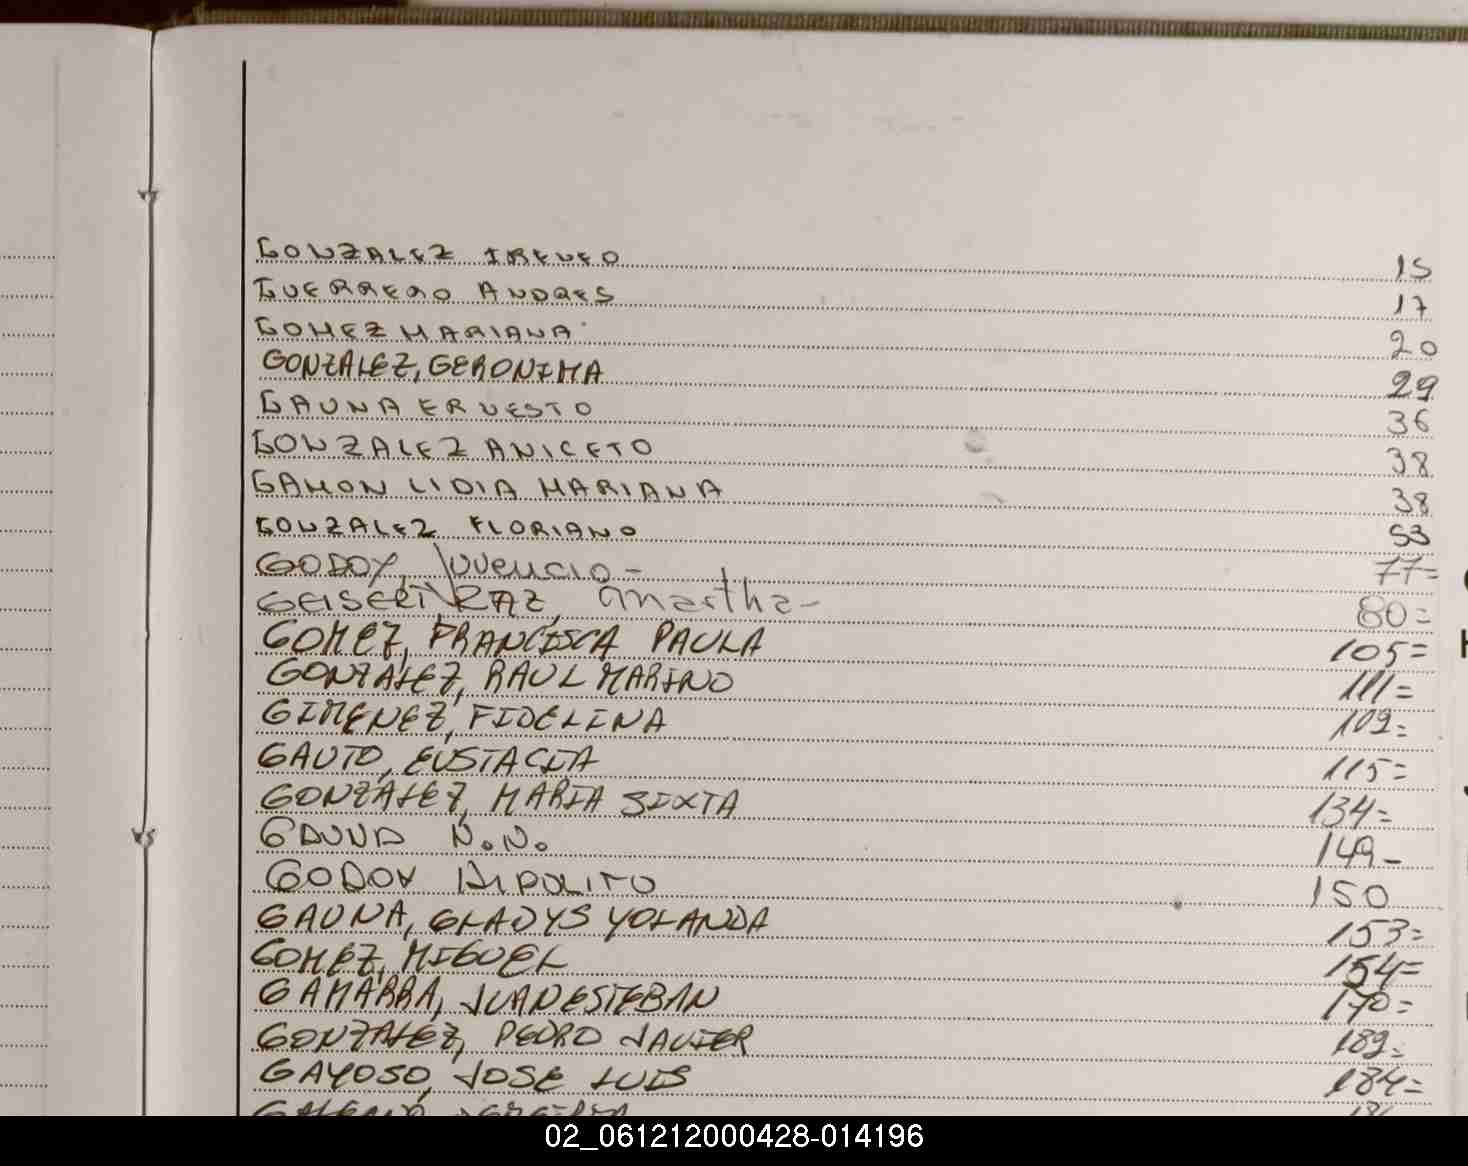 GONZALEZ IRENEO 15
GUERRERO ANDRES 17
GOMEZ MARIANA 20
GONZALEZ, GERONIMA 29
GAUNA ERNESTO 36
GONZALEZ ANICETO 38
GAMON LIDIA MARIANA 38
GONZALEZ FLORIANO 53
GODOY, Juvencio - 77=
Martha - 80=
GOMEZ, FRANCISCA PAULA 105=
GONZALEZ, RAUL MARINO 111=
GIMENEZ, FIDELINA 109=
GAUTO, EUSTACIA 115=
GONZALEZ, MARIA SIXTA 134=
GAUNA N.N. 149-
GODOY HIPOLITO 150
GAUNA, GLADYS YOLANDA 153=
GOMEZ, MIGUEL 154=
GAMARRA, JUAN ESTEBAN 170=
GONZALEZ, PEDRO JAVIER 189=
GAYOSO, JOSE LUIS 184=
02_061212000428-014196